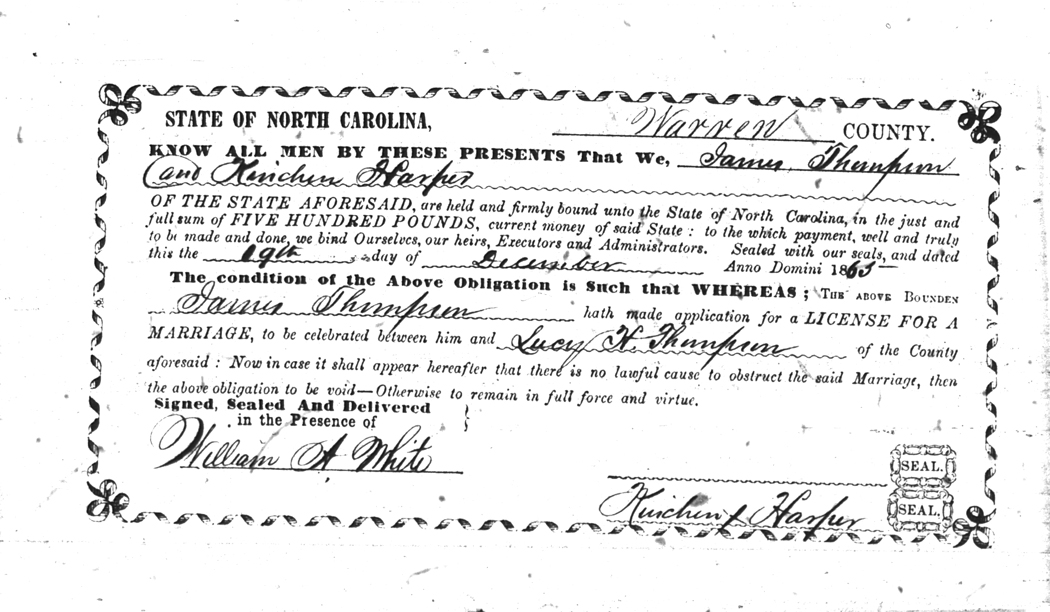 STATE OF NORTH CAROLINA, Warren COUNTY.
KNOW ALL MEN BY THESE PRESENTS That We, James Thompson
and Kinchen Harper
OF THE STATE AFORESAID, are held and firmly bound unto the State of North Carolina, in the just and
full sum of FIVE HUNDRED POUNDS, current money of said State: to the which payment, well and truly
to be made and done, we bind Ourselves, our heirs, Executors and Administrators. Sealed with our seals, and dated
this the 19th day of December Anno Domini 1865
The condition of the Above Obligation is Such that WHEREAS; THE ABOVE BOUNDEN
James Thompson hath made application for a LICENSE FOR A
MARRIAGE, to be celebrated between him and Lucy H. Thompson of the County
aforesaid: Now in case it shall appear hereafter that there is no lawful cause to obstruct the said Marriage, then
the above obligation to be void—Otherwise to remain in full force and virtue.
Signed, Sealed And Delivered
in the Presence of
William A White
SEAL.
Kinchen Harper SEAL.